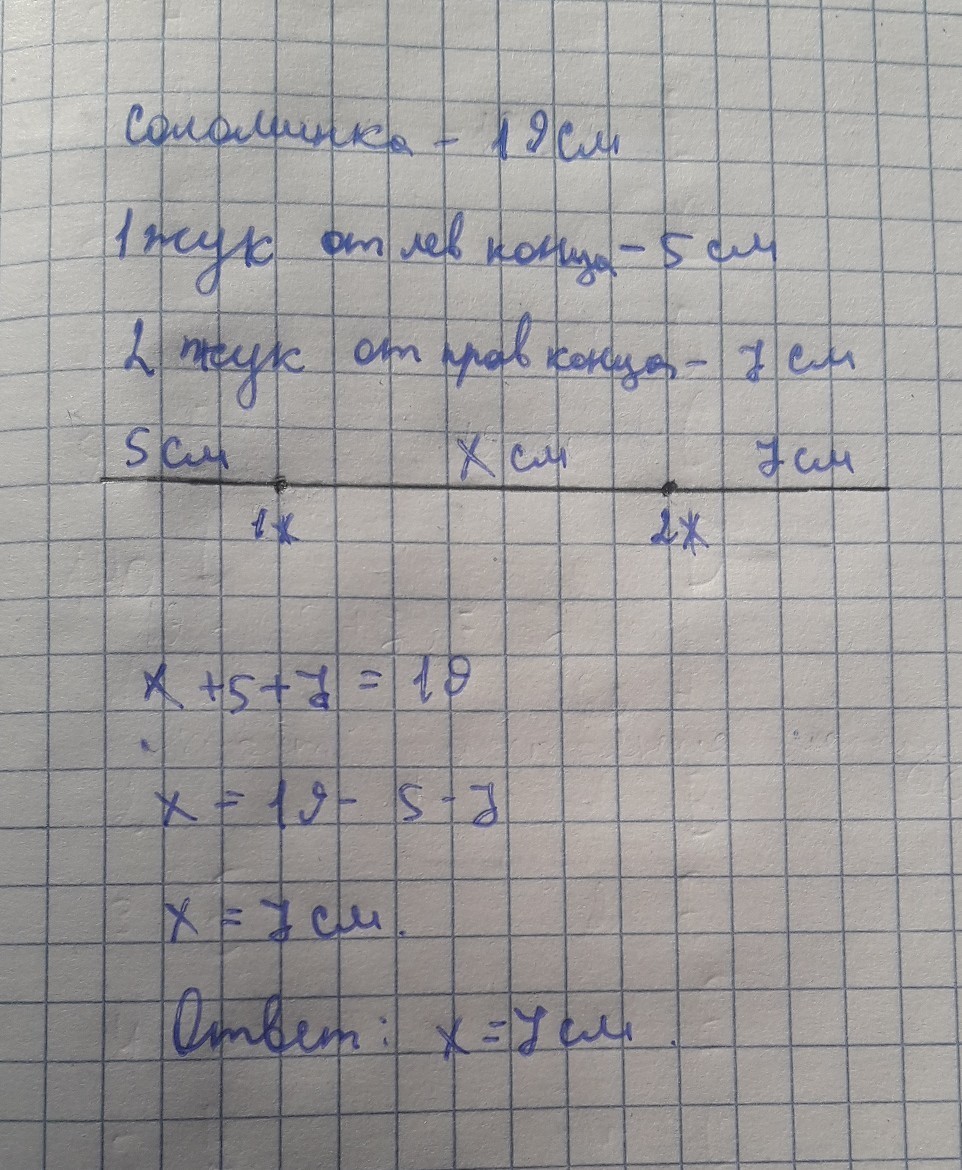 Соломинка - 19см
1 жук от лев конца - 5 см
2 жук от прав конца - 7 см
5см х см 7см
1ж 2ж
х + 5 + 7 = 19
х = 19 - 5 - 7
х = 7 см.
Ответ: х = 7 см.